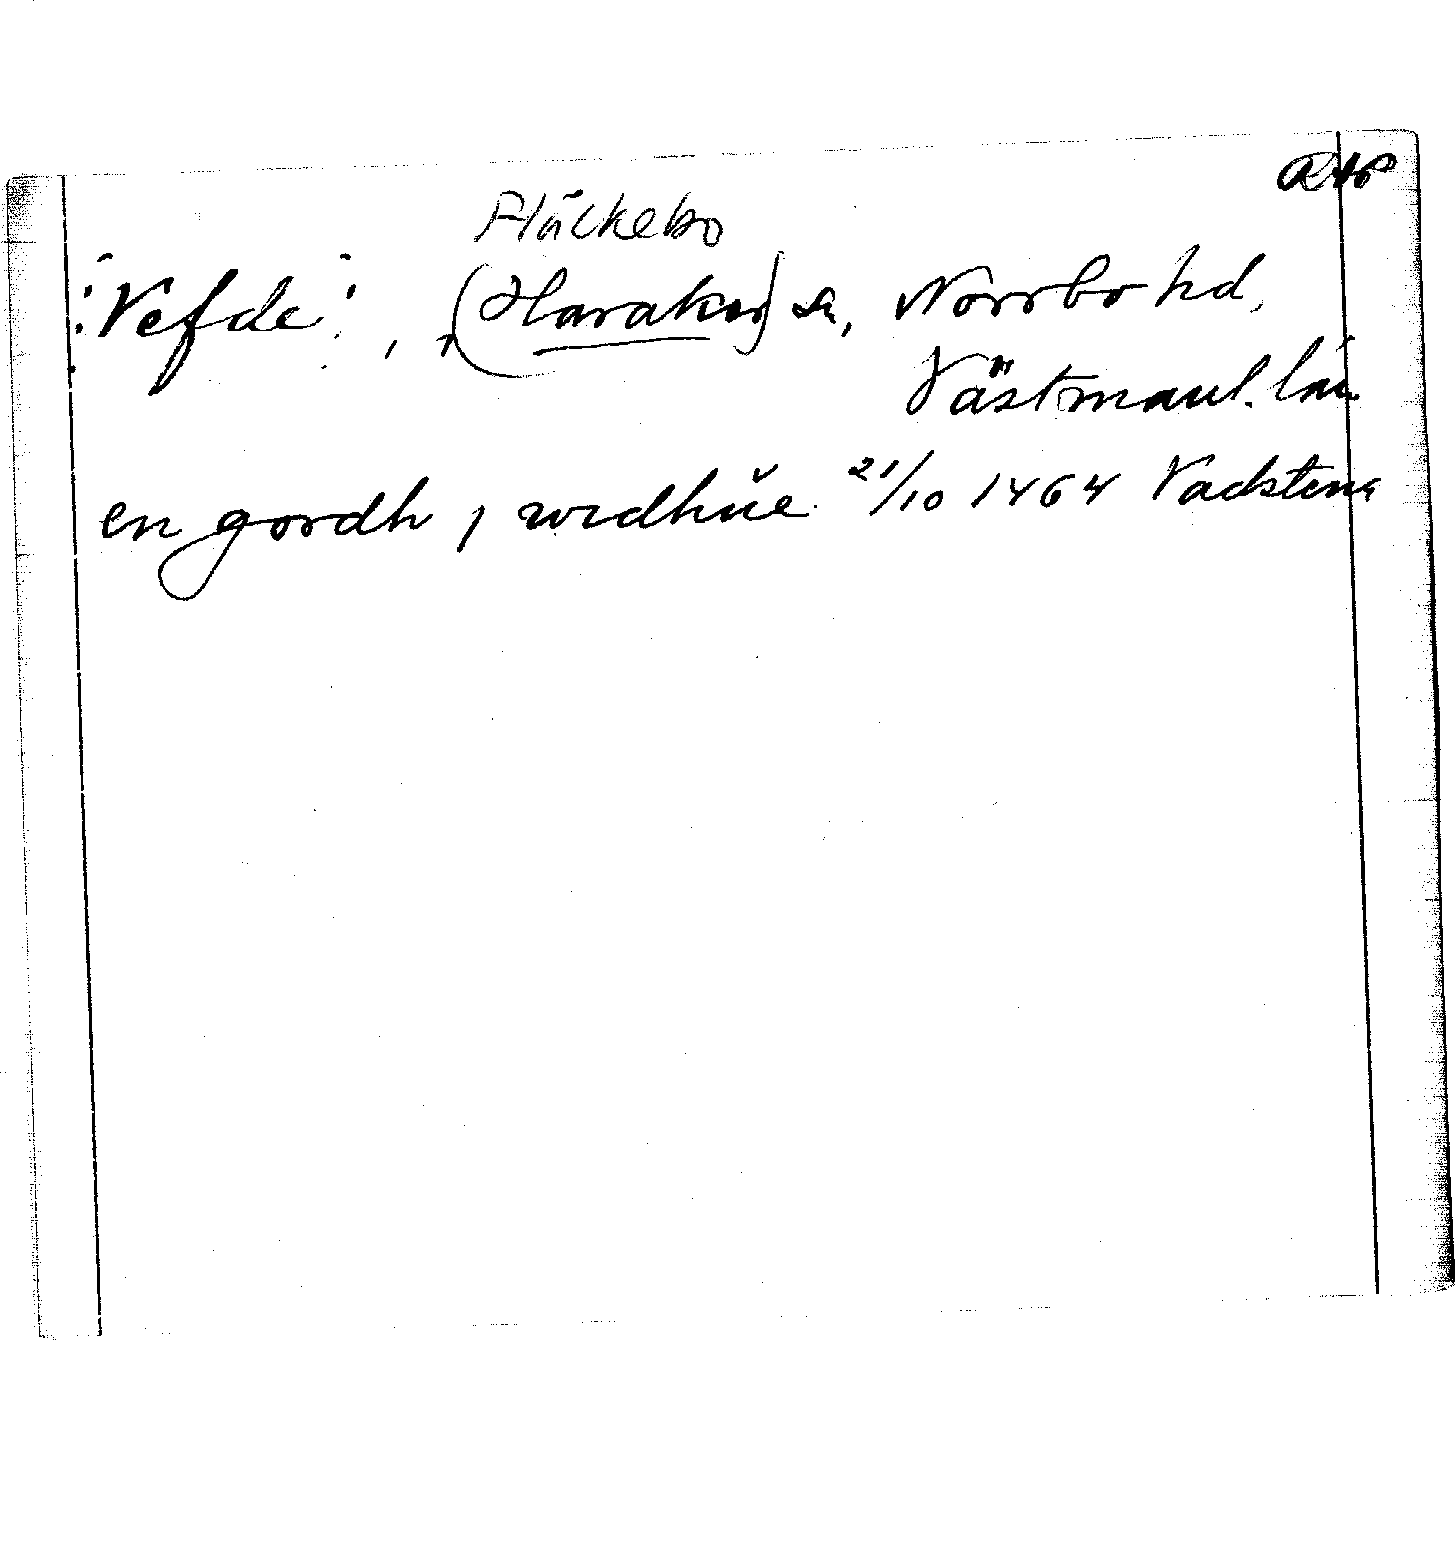 RAp
Fläckebo
[Vefde], (Haraker) sn, Norrbo hd,
Västmanl. län
en gordh j widhűe 21/10 1464 Vadstena